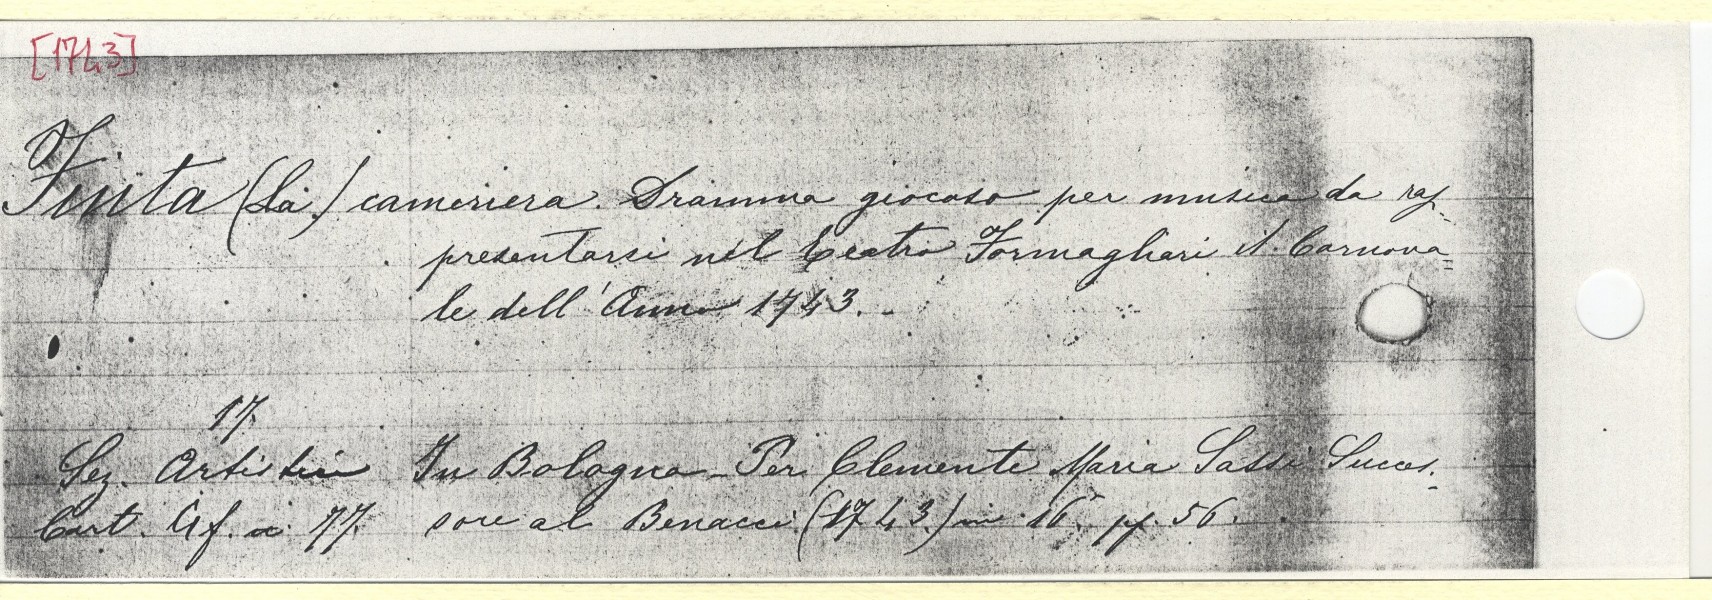 [1743]
Finta (La) cameriera. Dramma giocoso per musica da rap-
presentarsi nel teatro Formagliari il Carnova=
le dell'Anno 1743. -
17.
Sez. Artistica In Bologna - Per Clemente Maria Sassi Succes-
Cart. n. 77. sore al Benacci (1743) in 16° pp. 56.